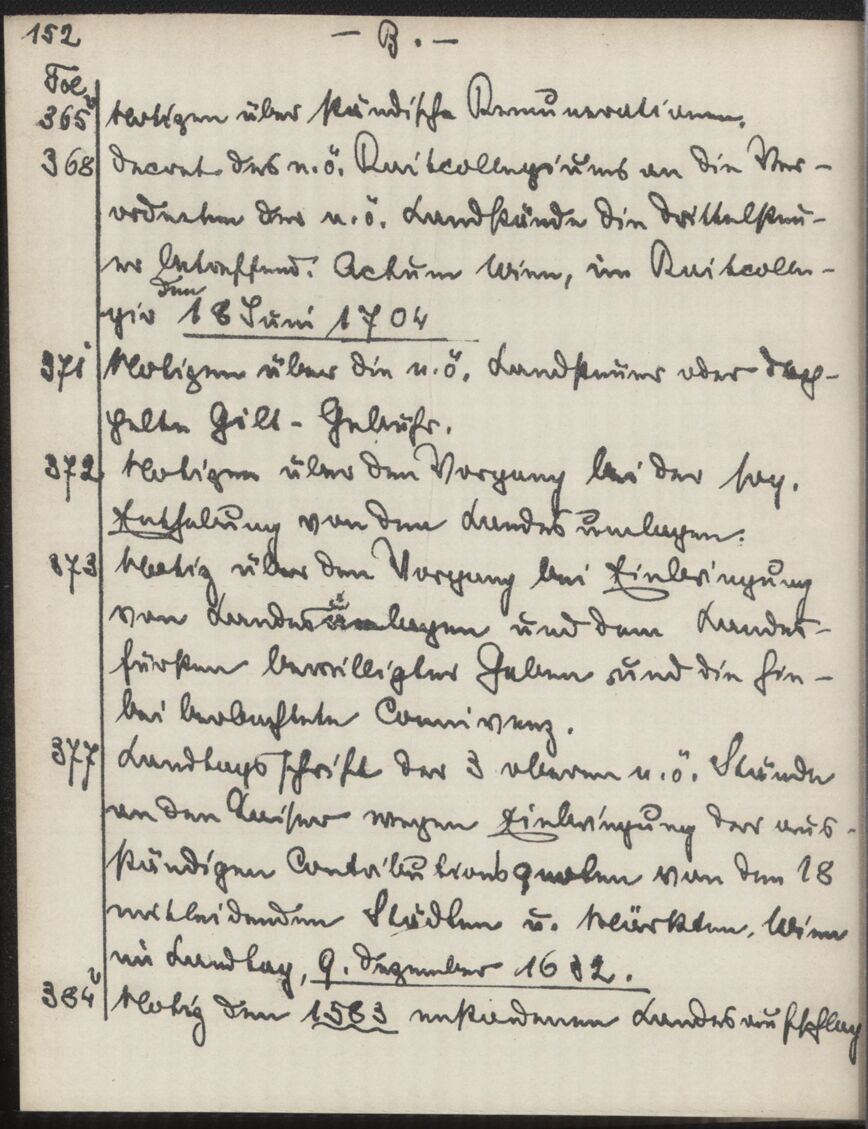 152 - B. -
Fol.
365v Notizen über ständische Remunerationen.
368 Decret des n.ö. Raitcollegiums an die Ver-
ordneten der n.ö. Landstände die Drittelsteu-
er betreffend. Actum Wien, im Raitcolle-
gio den 18 Juni 1704
371 Notizen über die n.ö. Landsteuer oder dop-
pelte Gilt-Gebühr.
372 Notizen über den Vorgang bei der sog.
Enthebung von den Landesumlagen.
373 Notiz über den Vorgang bei Einbringung
von Landesanlagen und dem Landes-
fürsten bewilligter Gaben und die hie-
bei beobachtete Connivenz.
377 Landtagsschrift der 3 oberen n.ö. Stände
an den Kaiser wegen Einbringung der aus-
ständigen Contributionsquoten von den 18
mitleidenden Städten u. Märkten. Wien
im Landtag, 9. Dezember 1632.
384v Notiz den 1583 entstandenen Landesaufschlag